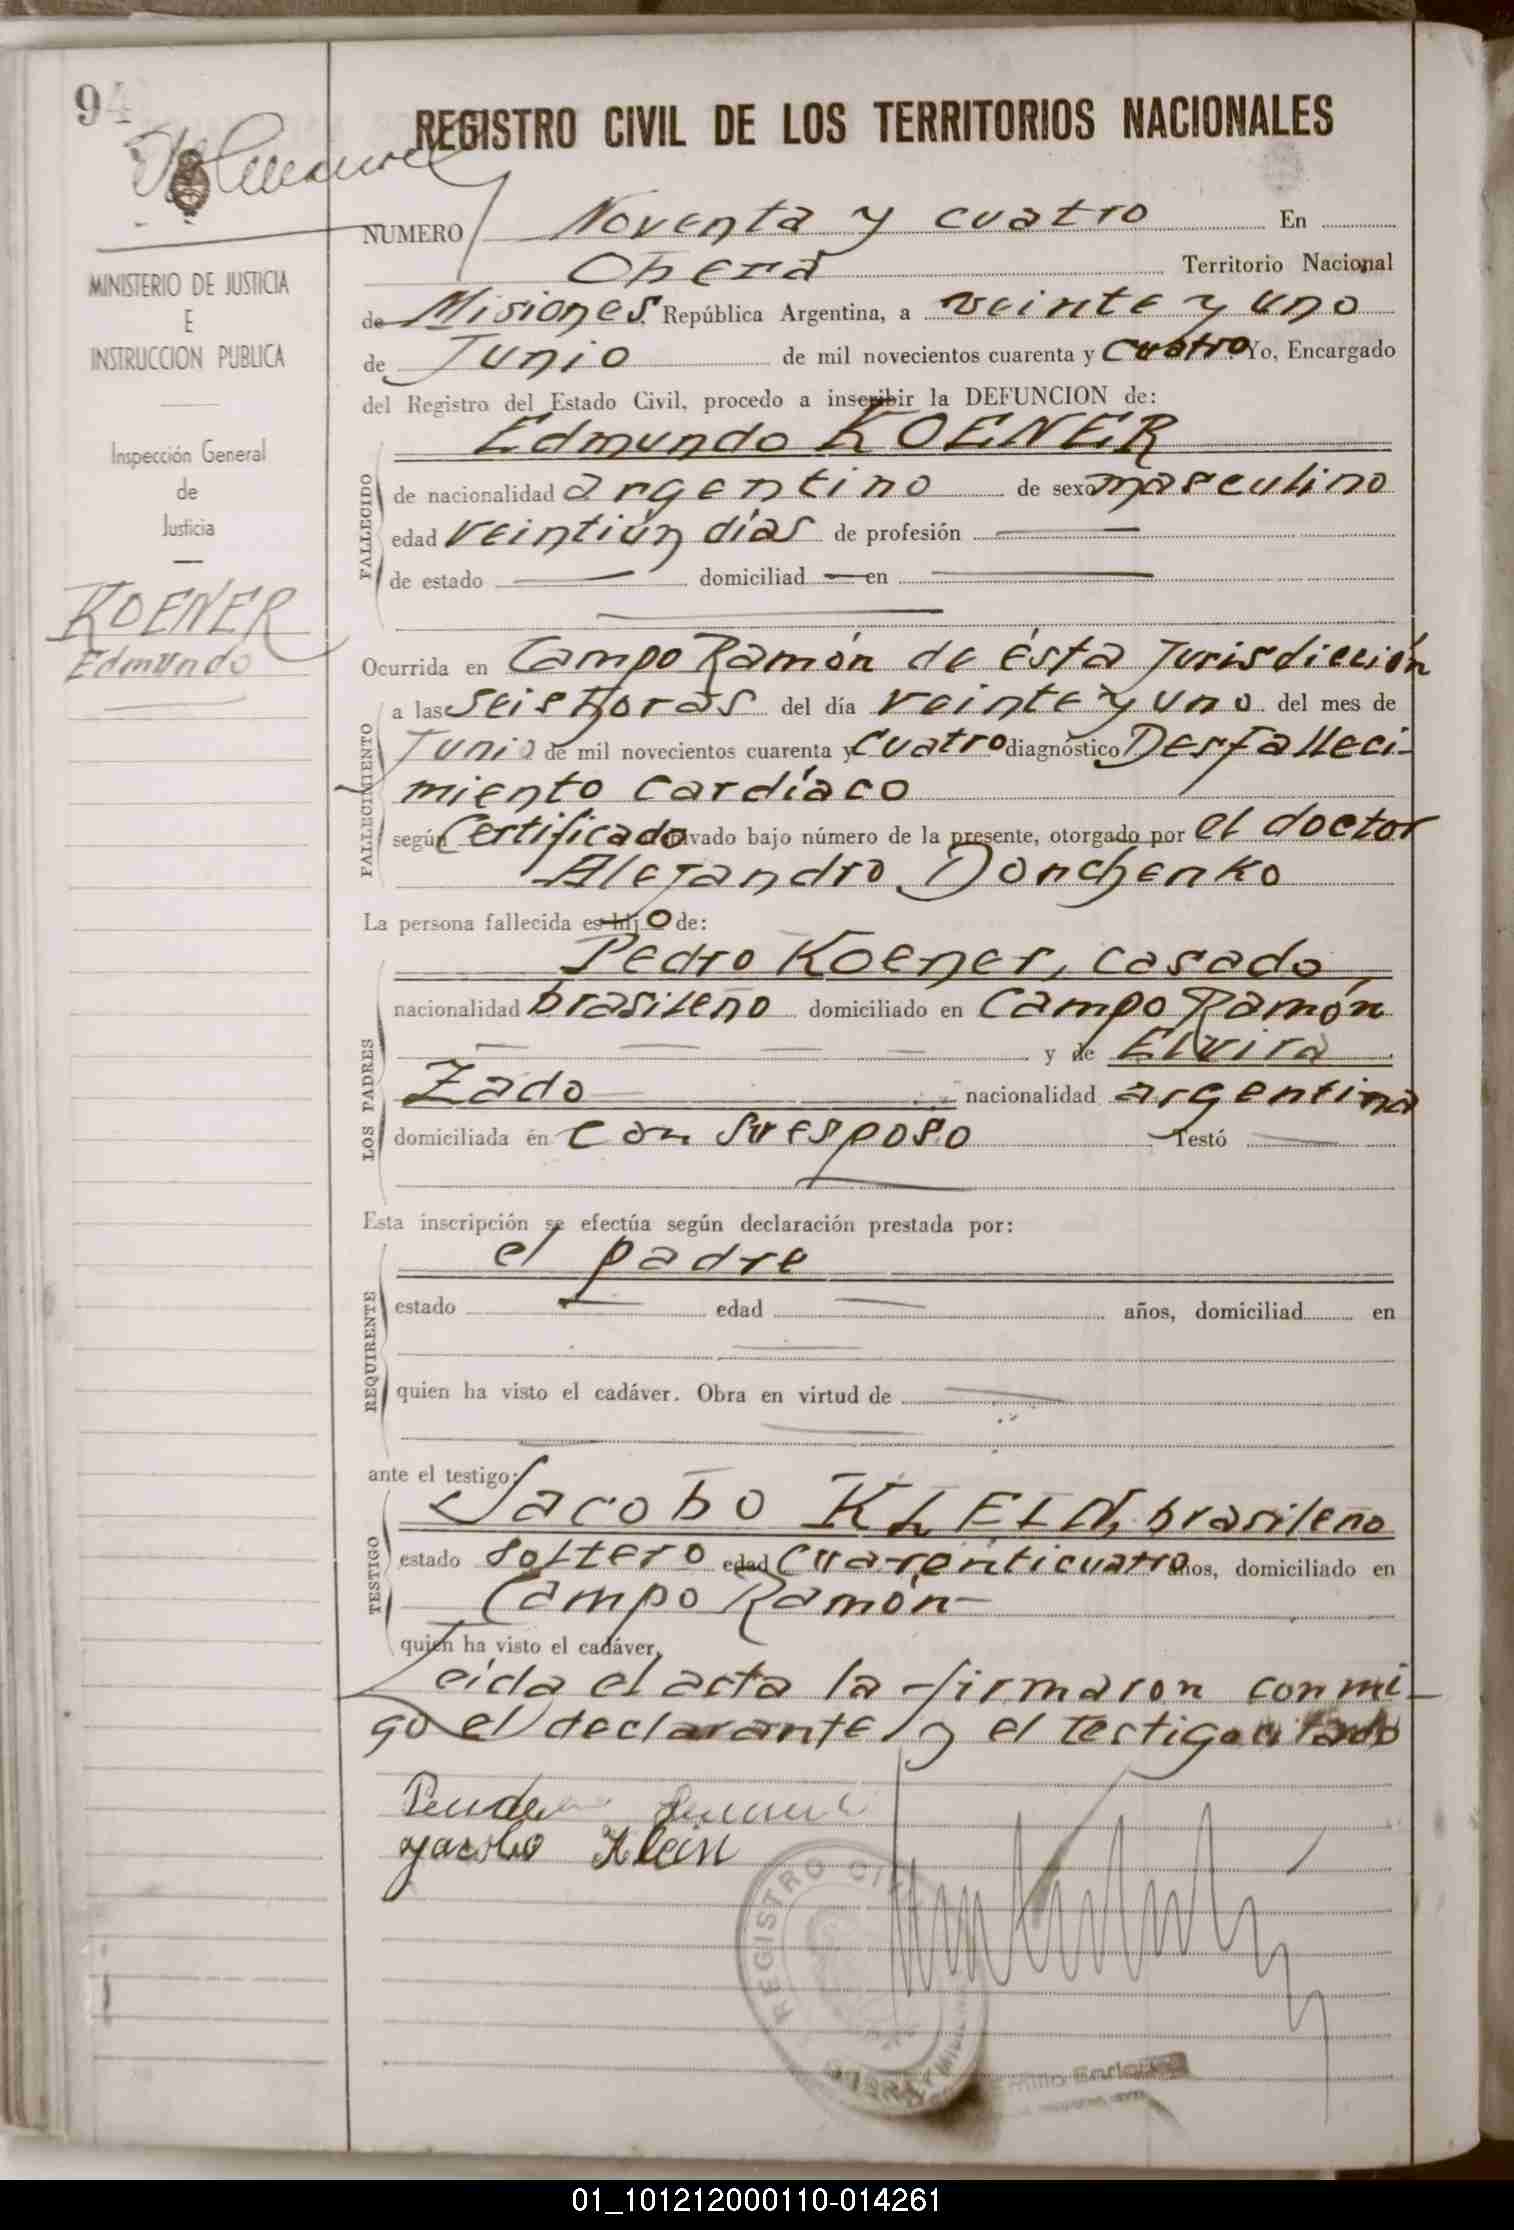 94
REGISTRO CIVIL DE LOS TERRITORIOS NACIONALES
NUMERO Noventa y cuatro En
Oberá Territorio Nacional
de Misiones, República Argentina, a veinte y uno
de Junio de mil novecientos cuarenta y cuatro Yo, Encargado
del Registro del Estado Civil, procedo a inscribir la DEFUNCION de:
Edmundo KOENER
FALLECIDO
de nacionalidad argentino de sexo masculino
edad veintiún días de profesión
de estado domiciliad en
MINISTERIO DE JUSTICIA
E
INSTRUCCION PUBLICA
Inspección General
de
Justicia
KOENER
Edmundo
Ocurrida en Campo Ramón de ésta Jurisdicción
FALLECIMIENTO
a las seis horas del día veinte y uno del mes de
Junio de mil novecientos cuarenta y cuatro diagnóstico Desfalleci-
miento cardíaco
según certificado archivado bajo número de la presente, otorgado por el doctor
Alejandro Donchenko
La persona fallecida es hijo de:
LOS PADRES
Pedro Koener, casado
nacionalidad brasileño domiciliado en Campo Ramón
y de Elvira
Zado nacionalidad argentina
domiciliada en con su esposo Testó
Esta inscripción se efectúa según declaración prestada por:
REQUIRENTE
el padre
estado edad años, domiciliad en
quien ha visto el cadáver. Obra en virtud de
ante el testigo:
TESTIGO
Jacobo KLEIN, brasileño
estado soltero edad cuarenticuatro años, domiciliado en
Campo Ramón
quien ha visto el cadáver.
Leída el acta la firmaron conmi-
go el declarante y el testigo citado
Jacobo Klein
REGISTRO CIVIL
01_101212000110-014261